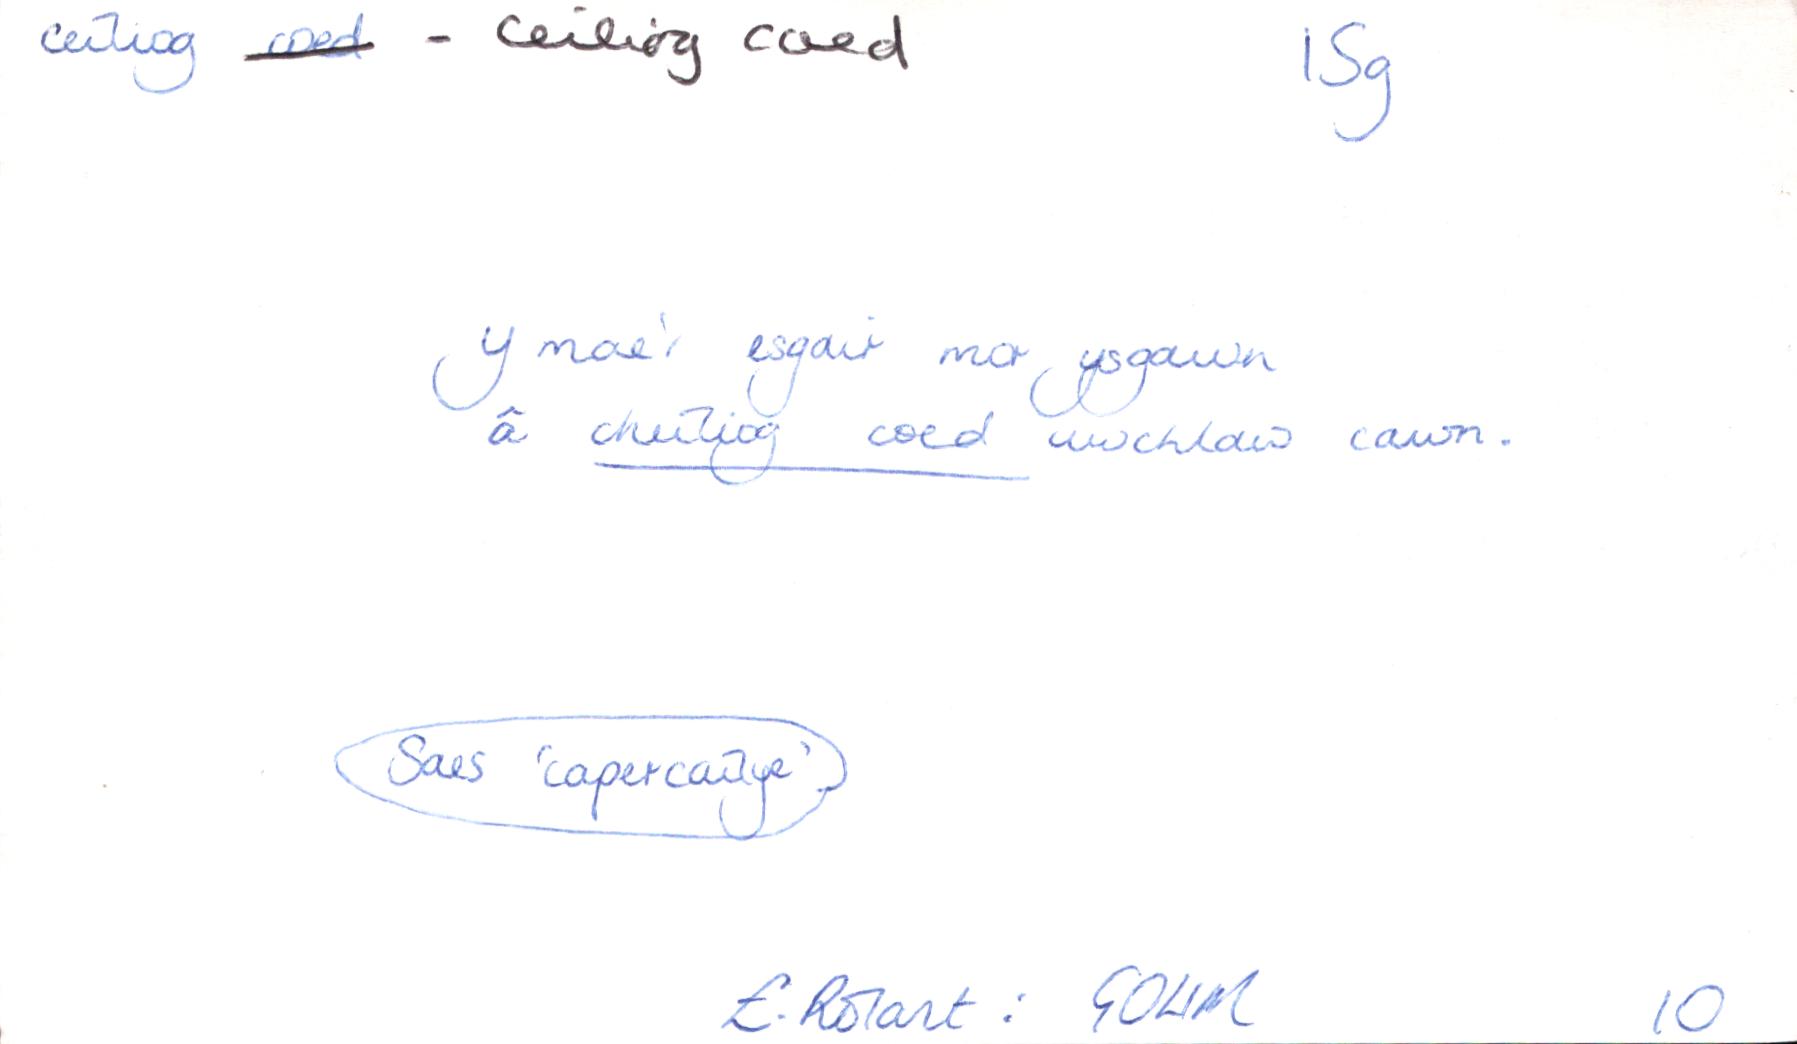 ceiliog coed - ceiliog coed 15g
Y mae'r esgair mor ysgawn
â cheiliog coed uwchlaw cawn.
Saes 'capercailye'
E. Rolant: GOLlM 10